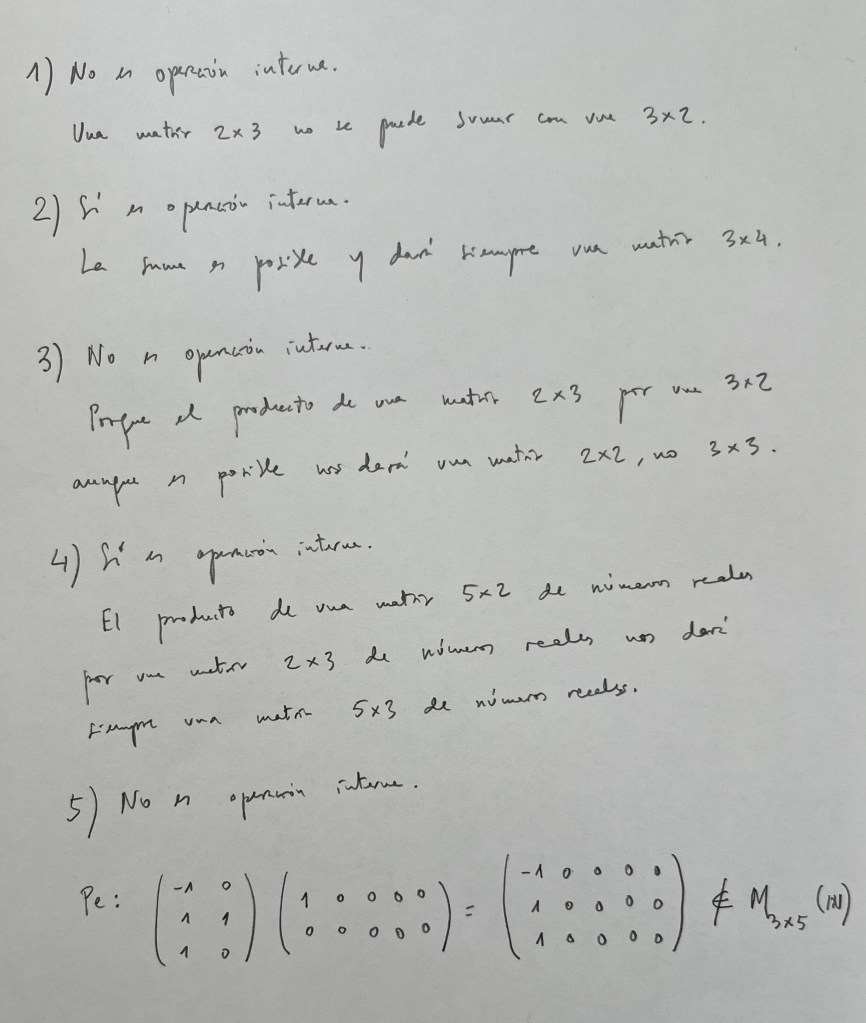 1) No es operación interna.
Una matriz 2×3 no se puede sumar con una 3×2.
2) Sí es operación interna.
La suma es posible y dará siempre una matriz 3×4.
3) No es operación interna.
Porque el producto de una matriz 2×3 por una 3×2
aunque es posible nos dará una matriz 2×2, no 3×3.
4) Sí es operación interna.
El producto de una matriz 5×2 de números reales
por una matriz 2×3 de números reales nos dará
siempre una matriz 5×3 de números reales.
5) No es operación interna.
Pe: ( -1 0 ) ( 1 0 0 0 0 ) = ( -1 0 0 0 0 ) ∉ M3×5 (ℕ)
1 1 0 0 0 0 0 1 0 0 0 0
1 0 1 0 0 0 0